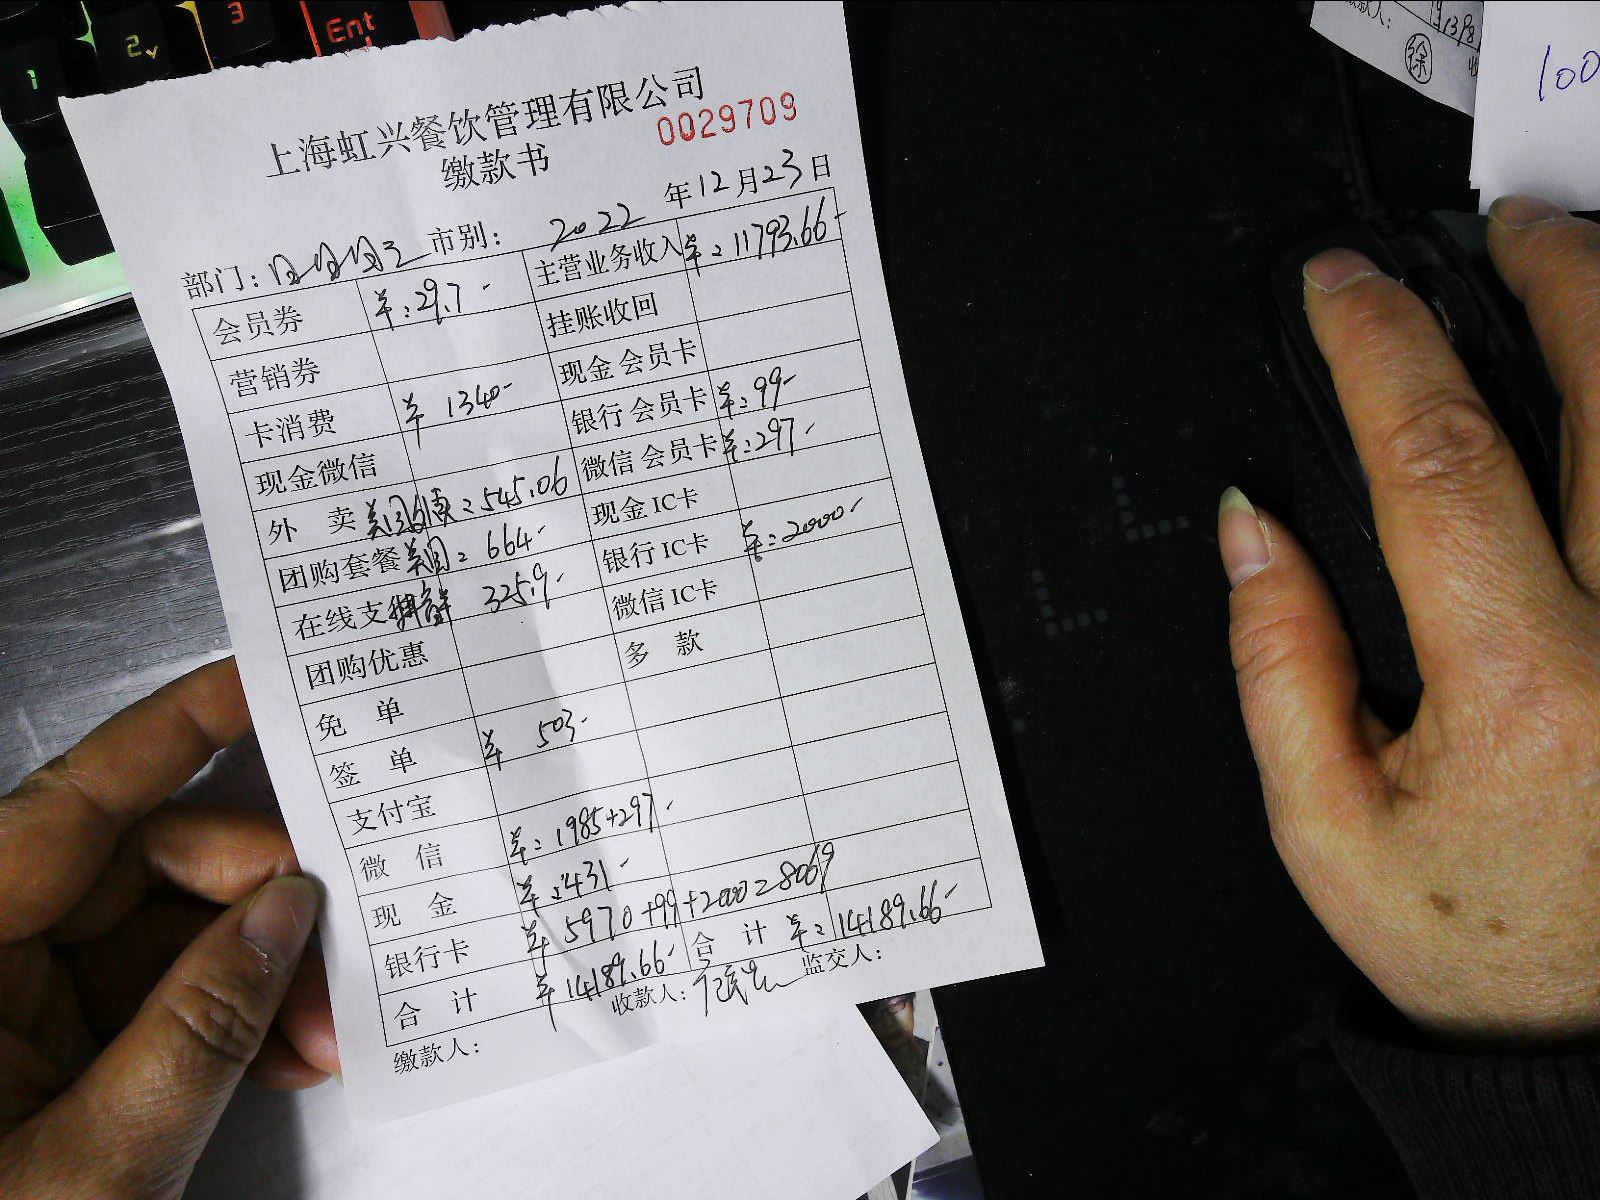 1
2
3
Ent
款人:
徐
100
上海虹兴餐饮管理有限公司
0029709
缴款书
部门: 市别: 2022 年12月23日
会员券 ¥:29.7- 主营业务收入 ¥:11793.66-
营销券 挂账收回
卡消费 ¥ 1340- 现金会员卡
现金微信 银行会员卡 ¥:99-
外 卖 :545.06 微信会员卡 ¥:297-
团购套餐 美团: 664- 现金IC卡
在线支 325.9- 银行IC卡 ¥:2000-
团购优惠 微信IC卡
免 单 多 款
签 单 ¥ 503-
支付宝
微 信 ¥:1985+297-
现 金 ¥:2431-
银行卡 ¥ 5970+99+2000=8069
合 计 ¥ 14189.66- 合 计 ¥:14189.66-
缴款人: 收款人: 监交人: